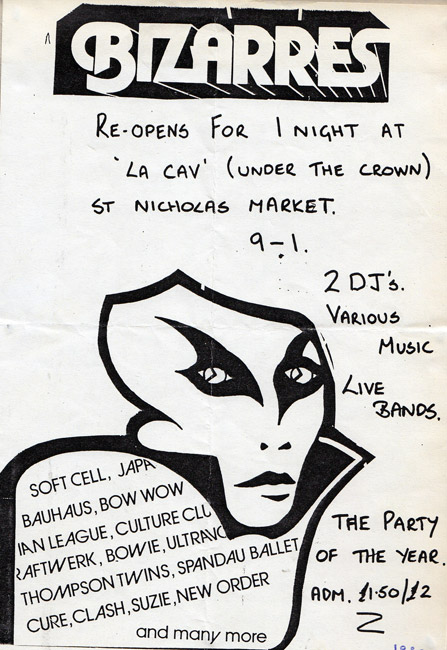 BIZARRES
RE-OPENS FOR 1 NIGHT AT
'LA CAV' (UNDER THE CROWN)
ST NICHOLAS MARKET.
9-1.
2 DJ's.
VARIOUS
MUSIC
LIVE
BANDS.
SOFT CELL, JAPA
BAUHAUS, BOW WOW
IAN LEAGUE, CULTURE CLU
RAFTWERK, BOWIE, ULTRAVO
THOMPSON TWINS, SPANDAU BALLET
CURE, CLASH, SUZIE, NEW ORDER
and many more
THE PARTY
OF THE YEAR.
ADM. £1·50/£2